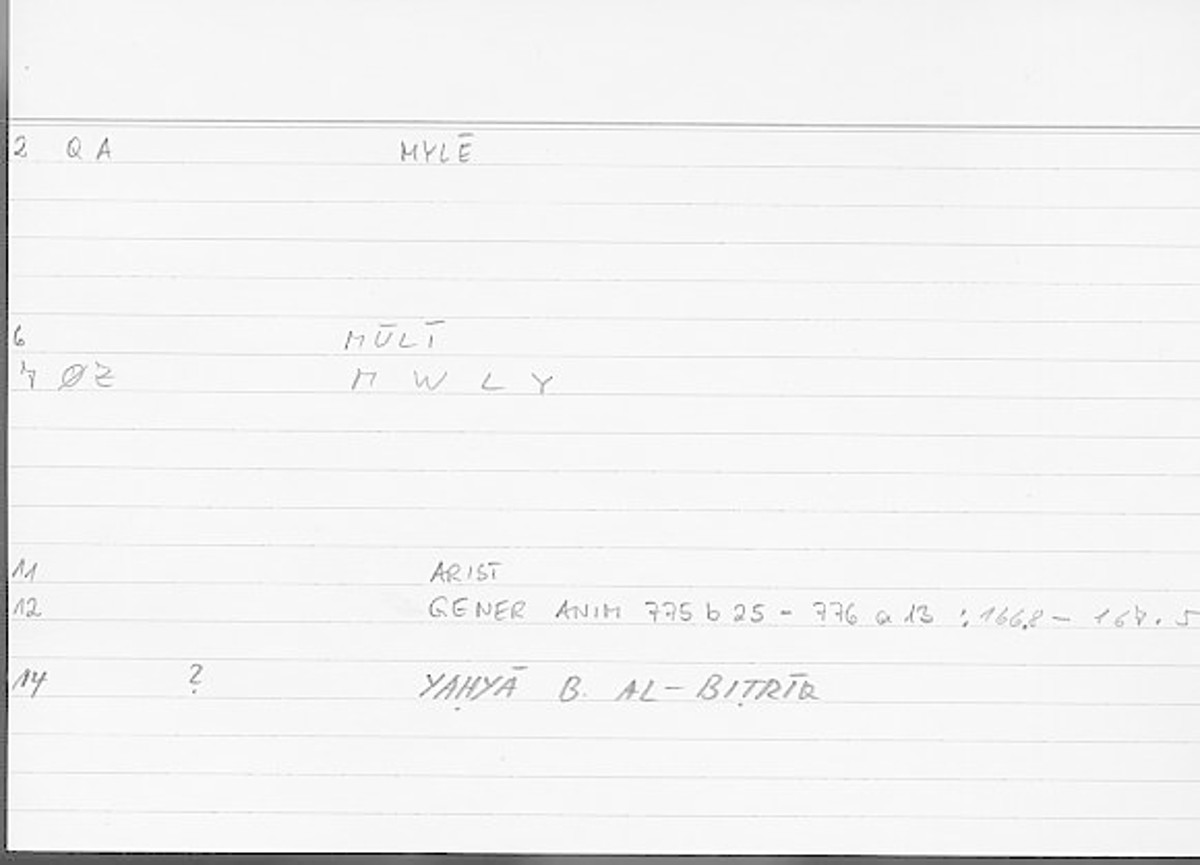 2 Q A MYLĒ
6 MŪLĪ
7 ØZ M W L Y
11 ARIST
12 GENER ANIM 775 b 25 - 776 a 13 : 166,8 - 167. 5
14 ? YAḤYĀ B. AL-BIṬRĪQ